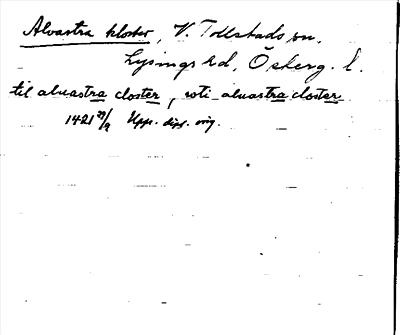 Alvastra kloster, V. Tollstads sn,
Lysings hd, Österg. l.
til aluastra closter, voti aluastra closter
1421 29/9 Upps. dipl. orig.